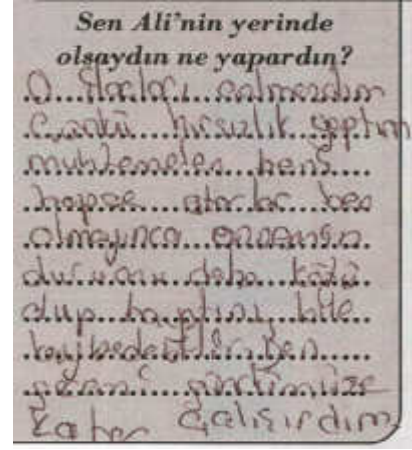 Sen Ali'nin yerinde
olsaydın ne yapardın?
O ilaçları çalmazdım
Çünkü hırsızlık yaptım
muhtemelen beni
hapse atarlar ben
olmayınca annemin
durumu daha kötü
olup hayatını bile
kaybedebilir. Ben
şıra
kadar Çalışırdım